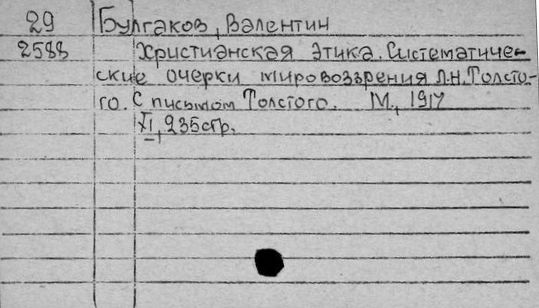 29 Булгаков, Валентин
2588 Христианская этика. Систематиче-
ские очерки мировоззрения Л.Н.Толсто-
го. С письмом Толстого. М., 1917
XI, 235стр.